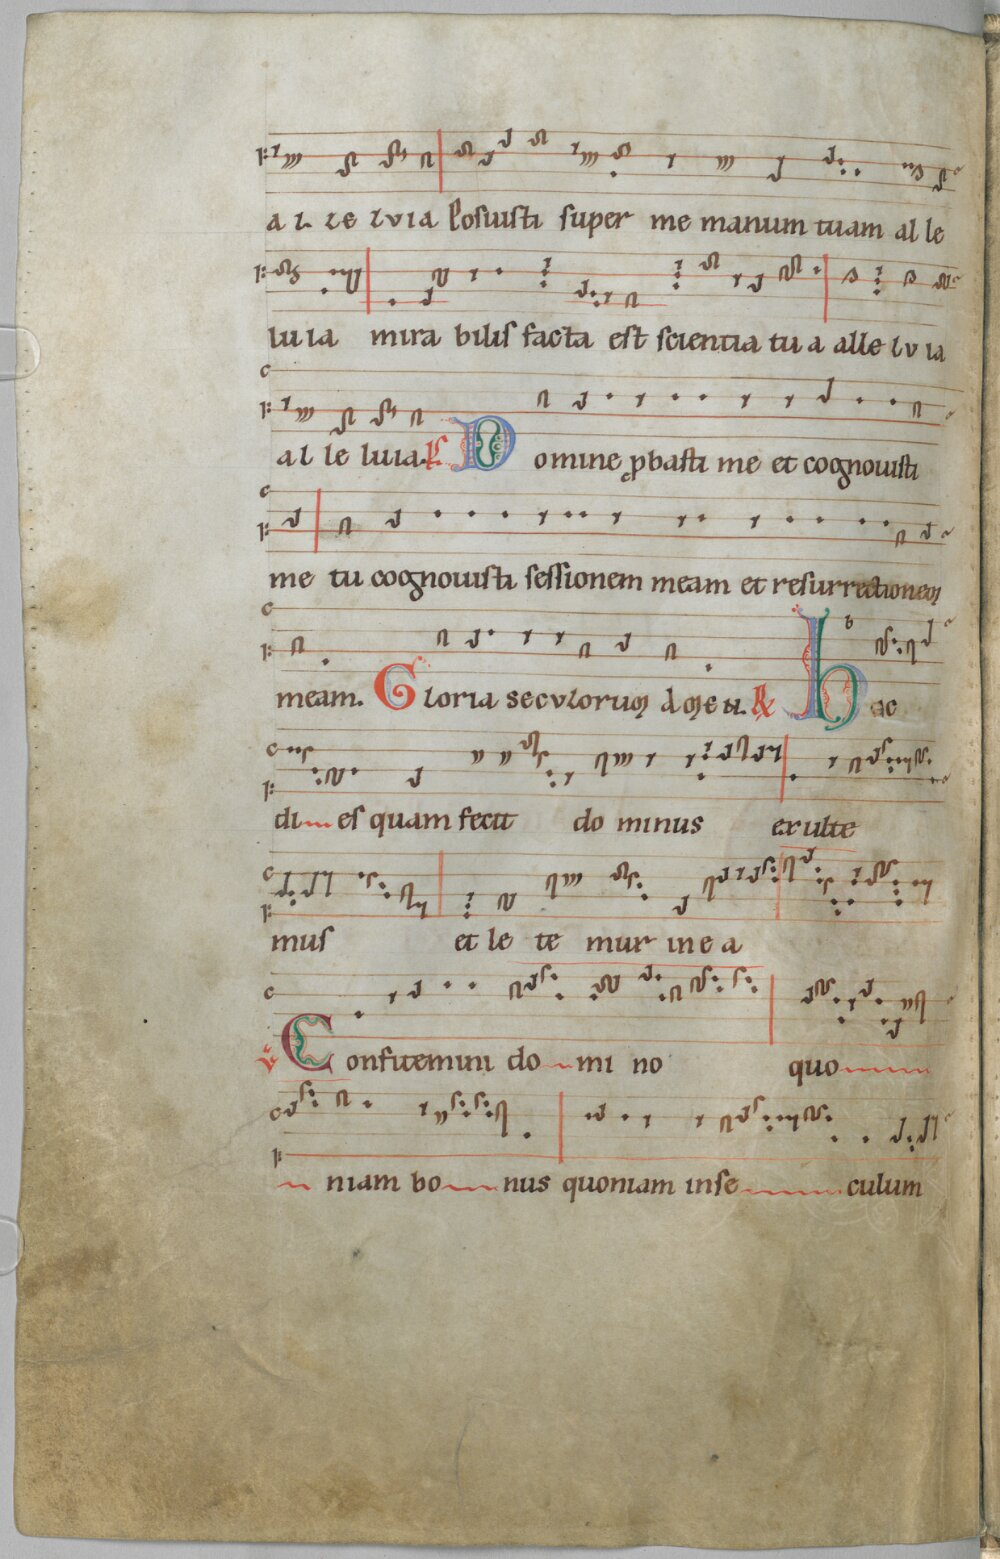 al le lvia Posuisti super me manum tuam al le
luia mira bilis facta est scientia tu a alle lv ia
al le luia. Ps Domine ꝓbasti me et cognouisti
me tu cognouisti sessionem meam et resurrectionem
meam. Gloria seculorum Amen. R Hec
di es quam fecit do minus exulte
mus et le te mur in e a
V Confitemini do mi no quo
niam bo nus quoniam inse culum